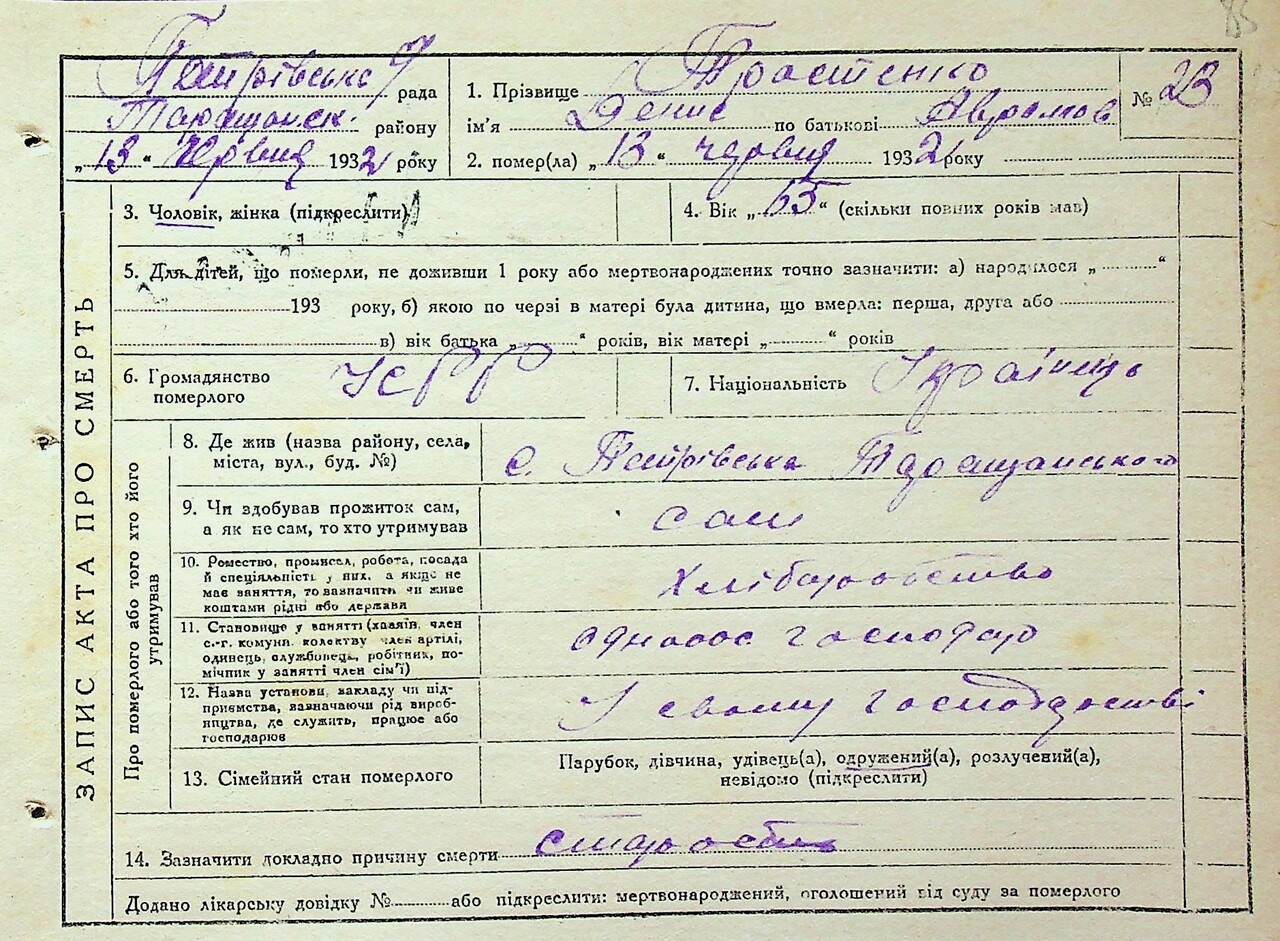 85
Петрівська рада
Таращанск. району
„13“ Червня 1932 року
1. Прізвище Трастенко
ім'я Денис по батькові Аврамов
№ 23
2. помер(ла) „13“ червня 1932 року
ЗАПИС АКТА ПРО СМЕРТЬ
3. Чоловік, жінка (підкреслити)
4. Вік „65“ (скільки повних років мав)
5. Для дітей, що померли, не доживши 1 року або мертвонароджених точно зазначити: а) народилося „ “
193 року, б) якою по черзі в матері була дитина, що вмерла: перша, друга або
в) вік батька „ “ років, вік матері „ “ років
6. Громадянство
померлого
УСРР
7. Національність Українець
Про померлого або того хто його
утримував
8. Де жив (назва району, села,
міста, вул., буд. №)
с. Петрівська Таращанського
9. Чи здобував прожиток сам,
а як не сам, то хто утримував
сам
10. Ремество, промисел, робота, посада
й спеціяльність у них, а якщо не
має заняття, то зазначить чи живе
коштами рідні або держави
Хліборобство
11. Становище у занятті (хазяїв, член
с.-г. комуни, колективу член артілі,
одинець, службовець, робітник, по-
мічник у занятті член сім'ї)
однооос господар
12. Назва установи, закладу чи під-
приємства, зазначаючи рід вироб-
ництва, де служить, працює або
господарює
У свому господарстві
13. Сімейний стан померлого
Парубок, дівчина, удівець(а), одружений(а), розлучений(а),
невідомо (підкреслити)
14. Зазначити докладно причину смерти старость
Додано лікарську довідку № або підкреслити: мертвонароджений, оголошений від суду за померлого